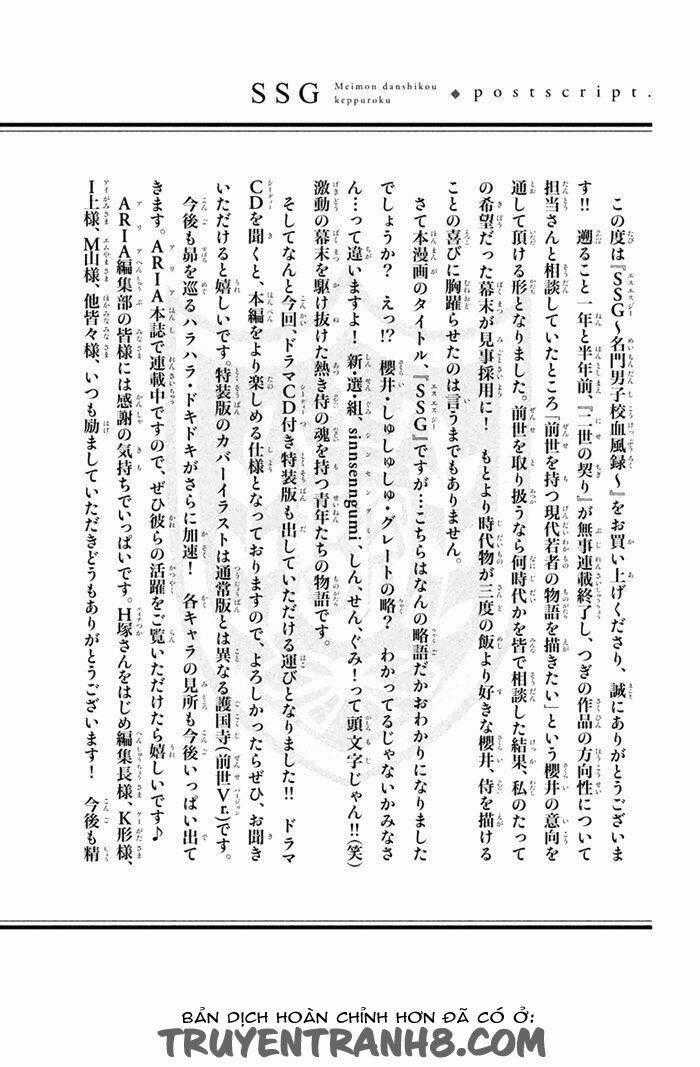 SSG
Meimon danshikou
keppuroku
◆ postscript.
この度は『SSG〜名門男子校血風録〜』をお買い上げくださり、誠にありがとうございま
す!! 遡ること一年と半年前、『二世の契り』が無事連載終了し、つぎの作品の方向性について
担当さんと相談していたところ『前世を持つ現代若者の物語を描きたい」という櫻井の意向を
通して頂ける形となりました。前世を取り扱うなら何時代かを皆で相談した結果、私のたって
の希望だった幕末が見事採用に! もとより時代物が三度の飯より好きな櫻井、侍を描ける
ことの喜びに胸躍らせたのは言うまでもありません。
さて本漫画のタイトル、『SSG』ですが…こちらはなんの略語だかおわかりになりました
でしょうか? えっ!? 櫻井・しゅしゅしゅ・グレートの略? わかってるじゃないかみなさ
ん…って違いますよ! 新・選・組、sinnsenngumi、しん、せん、ぐみ!って頭文字じゃん!!(笑)
激動の幕末を駆け抜けた熱き侍の魂を持つ青年たちの物語です。
そしてなんと今回、ドラマCD付き特装版も出していただける運びとなりました!! ドラマ
CDを聞くと、本編をより楽しめる仕様となっておりますので、よろしかったらぜひ、お聞き
いただけると嬉しいです。特装版のカバーイラストは通常版とは異なる護国寺(前世Ver.)です。
今後も昴を巡るハラハラ・ドキドキがさらに加速! 各キャラの見所も今後いっぱい出て
きます。ARIA本誌で連載中ですので、ぜひ彼らの活躍をご覧いただけたら嬉しいです♪
ARIA編集部の皆様には感謝の気持ちでいっぱいです。H塚さんをはじめ編集長様、K形様、
I上様、M山様、他皆々様、いつも励ましていただきどうもありがとうございます! 今後も精
BẢN DỊCH HOÀN CHỈNH HƠN ĐÃ CÓ Ở:
TRUYENTRANH8.COM